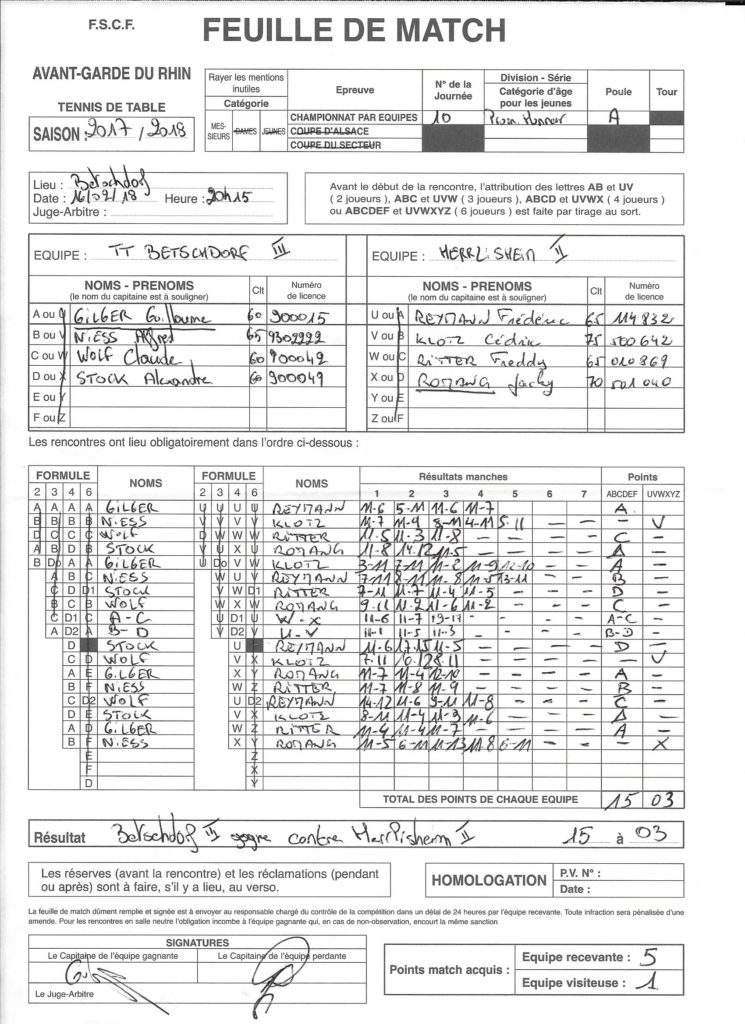 F.S.C.F.
FEUILLE DE MATCH
AVANT-GARDE DU RHIN
TENNIS DE TABLE
SAISON : 2017 / 2018
Rayer les mentions inutiles
Catégorie
MES-SIEURS DAMES JEUNES
Epreuve
CHAMPIONNAT PAR EQUIPES
COUPE D'ALSACE
COUPE DU SECTEUR
N° de la Journée
10
Division - Série
Catégorie d'âge pour les jeunes
Poule
A
Tour
Lieu : Betschdorf
Date : 16/02/18 Heure : 20h15
Juge-Arbitre :
Avant le début de la rencontre, l'attribution des lettres AB et UV
( 2 joueurs ), ABC et UVW ( 3 joueurs ), ABCD et UVWX ( 4 joueurs )
ou ABCDEF et UVWXYZ ( 6 joueurs ) est faite par tirage au sort.
EQUIPE : TT BETSCHDORF III
EQUIPE : HERRLISHEIM II
NOMS - PRENOMS
(le nom du capitaine est à souligner)
Clt
Numéro de licence
NOMS - PRENOMS
(le nom du capitaine est à souligner)
Clt
Numéro de licence
A ou U GILGER Guillaume 60 900015
U ou A REYMANN Frédéric 65 114832
B ou V NIESS Alfred 65 9302222
V ou B KLOTZ Cédric 75 500642
C ou W WOLF Claude 60 900042
W ou C RITTER Freddy 65 010869
D ou X STOCK Alexandre 60 900049
X ou D ROMANG Jacky 70 501040
E ou Y
Y ou E
F ou Z
Z ou F
Les rencontres ont lieu obligatoirement dans l'ordre ci-dessous :
FORMULE NOMS FORMULE NOMS Résultats manches Points
2 3 4 6 2 3 4 6 1 2 3 4 5 6 7 ABCDEF UVWXYZ
A A A A GILGER U U U U REYMANN 11-6 5-11 11-6 11-7 A
B B B B NIESS V V V V KLOTZ 11-7 11-9 8-11 4-11 5-11 - - - V
C C C WOLF W W W RITTER 11-5 11-3 11-8 - - - - C -
A B D B STOCK U V X U ROMANG 11-8 14-12 11-5 - - - - D -
B Do A A GILGER U Do V V KLOTZ 3-11 7-11 11-2 11-9 12-10 - - A -
A B C NIESS W U V REYMANN 7-11 11-8 11-8 11-5 13-11 - - B -
C D D1 STOCK V W D1 RITTER 7-11 11-7 11-4 11-5 - - - D -
B C B WOLF W X W ROMANG 9-11 11-2 11-6 11-2 - - - C -
C D1 C A-C U D1 W-X 11-6 11-7 19-17 - - - - A-C -
A D2 A B-D V D2 U-V 11-1 11-5 11-3 - - - - B-D -
D STOCK U REYMANN 11-6 17-15 11-5 - - - - D -
C D WOLF V X KLOTZ 7-11 10-12 8-11 - - - - - V
A E GILGER X Y ROMANG 11-7 11-4 12-10 - - - - A -
B F NIESS W Z RITTER 11-7 11-8 11-9 - - - - B -
C D2 WOLF U D2 REYMANN 14-12 11-6 9-11 11-8 - - - C -
D E STOCK V X KLOTZ 8-11 11-4 11-9 11-6 - - - D -
A D GILGER W Z RITTER 11-4 11-4 11-7 - - - - A -
B F NIESS X Y ROMANG 11-5 6-11 11-13 11-8 6-11 - - - X
E Z
F X
D Y
TOTAL DES POINTS DE CHAQUE EQUIPE 15 03
Résultat Betschdorf III gagne contre Herrlisheim II 15 à 03
Les réserves (avant la rencontre) et les réclamations (pendant
ou après) sont à faire, s'il y a lieu, au verso.
HOMOLOGATION
P.V. N° :
Date :
La feuille de match dûment remplie et signée est à envoyer au responsable chargé du contrôle de la compétition dans un délai de 24 heures par l'équipe recevante. Toute infraction sera pénalisée d'une
amende. Pour les rencontres en salle neutre l'obligation incombe à l'équipe gagnante qui, en cas de non-observation, encourt la même sanction
SIGNATURES
Le Capitaine de l'équipe gagnante
Le Capitaine de l'équipe perdante
Le Juge-Arbitre
Points match acquis :
Equipe recevante : 5
Equipe visiteuse : 1